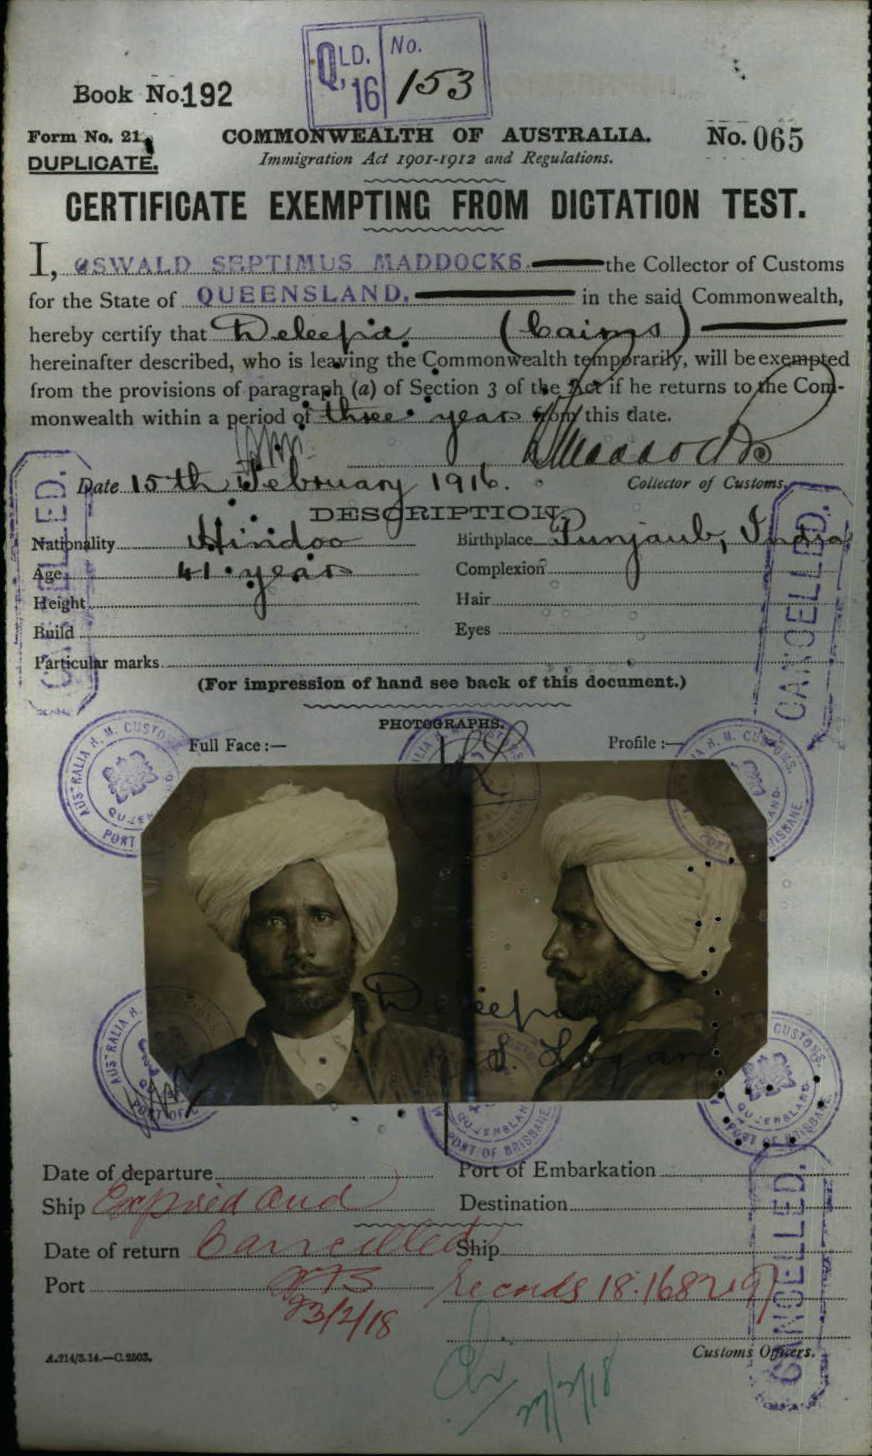 QLD. No.
'16 153
Book No. 192
Form No. 21.
COMMONWEALTH OF AUSTRALIA.
No. 065
DUPLICATE.
Immigration Act 1901-1912 and Regulations.
CERTIFICATE EXEMPTING FROM DICTATION TEST.
I, OSWALD SEPTIMUS MADDOCKS. the Collector of Customs
for the State of QUEENSLAND. in the said Commonwealth,
hereby certify that Deleepia. (Cairns)
hereinafter described, who is leaving the Commonwealth temporarily, will be exempted
from the provisions of paragraph (a) of Section 3 of the Act if he returns to the Com-
monwealth within a period of three years from this date.
Maddocks
Date 15th February 1916.
Collector of Customs.
DESCRIPTION.
Nationality Hindoo Birthplace Punjaub, India
Age 41 years Complexion
Height Hair
Build Eyes
Particular marks
CANCELLED.
CANCELLED.
(For impression of hand see back of this document.)
PHOTOGRAPHS.
Full Face :— Profile :—
AUSTRALIA H. M. CUSTOMS. QUEENSLAND PORT OF BRISBANE
S. Logan
Date of departure Port of Embarkation
Ship Destination
Expired and
Date of return Cancelled Ship
Port
Records 18.
23/2/18
CANCELLED.
Customs Officers.
A.214/3.14.—C.2503.